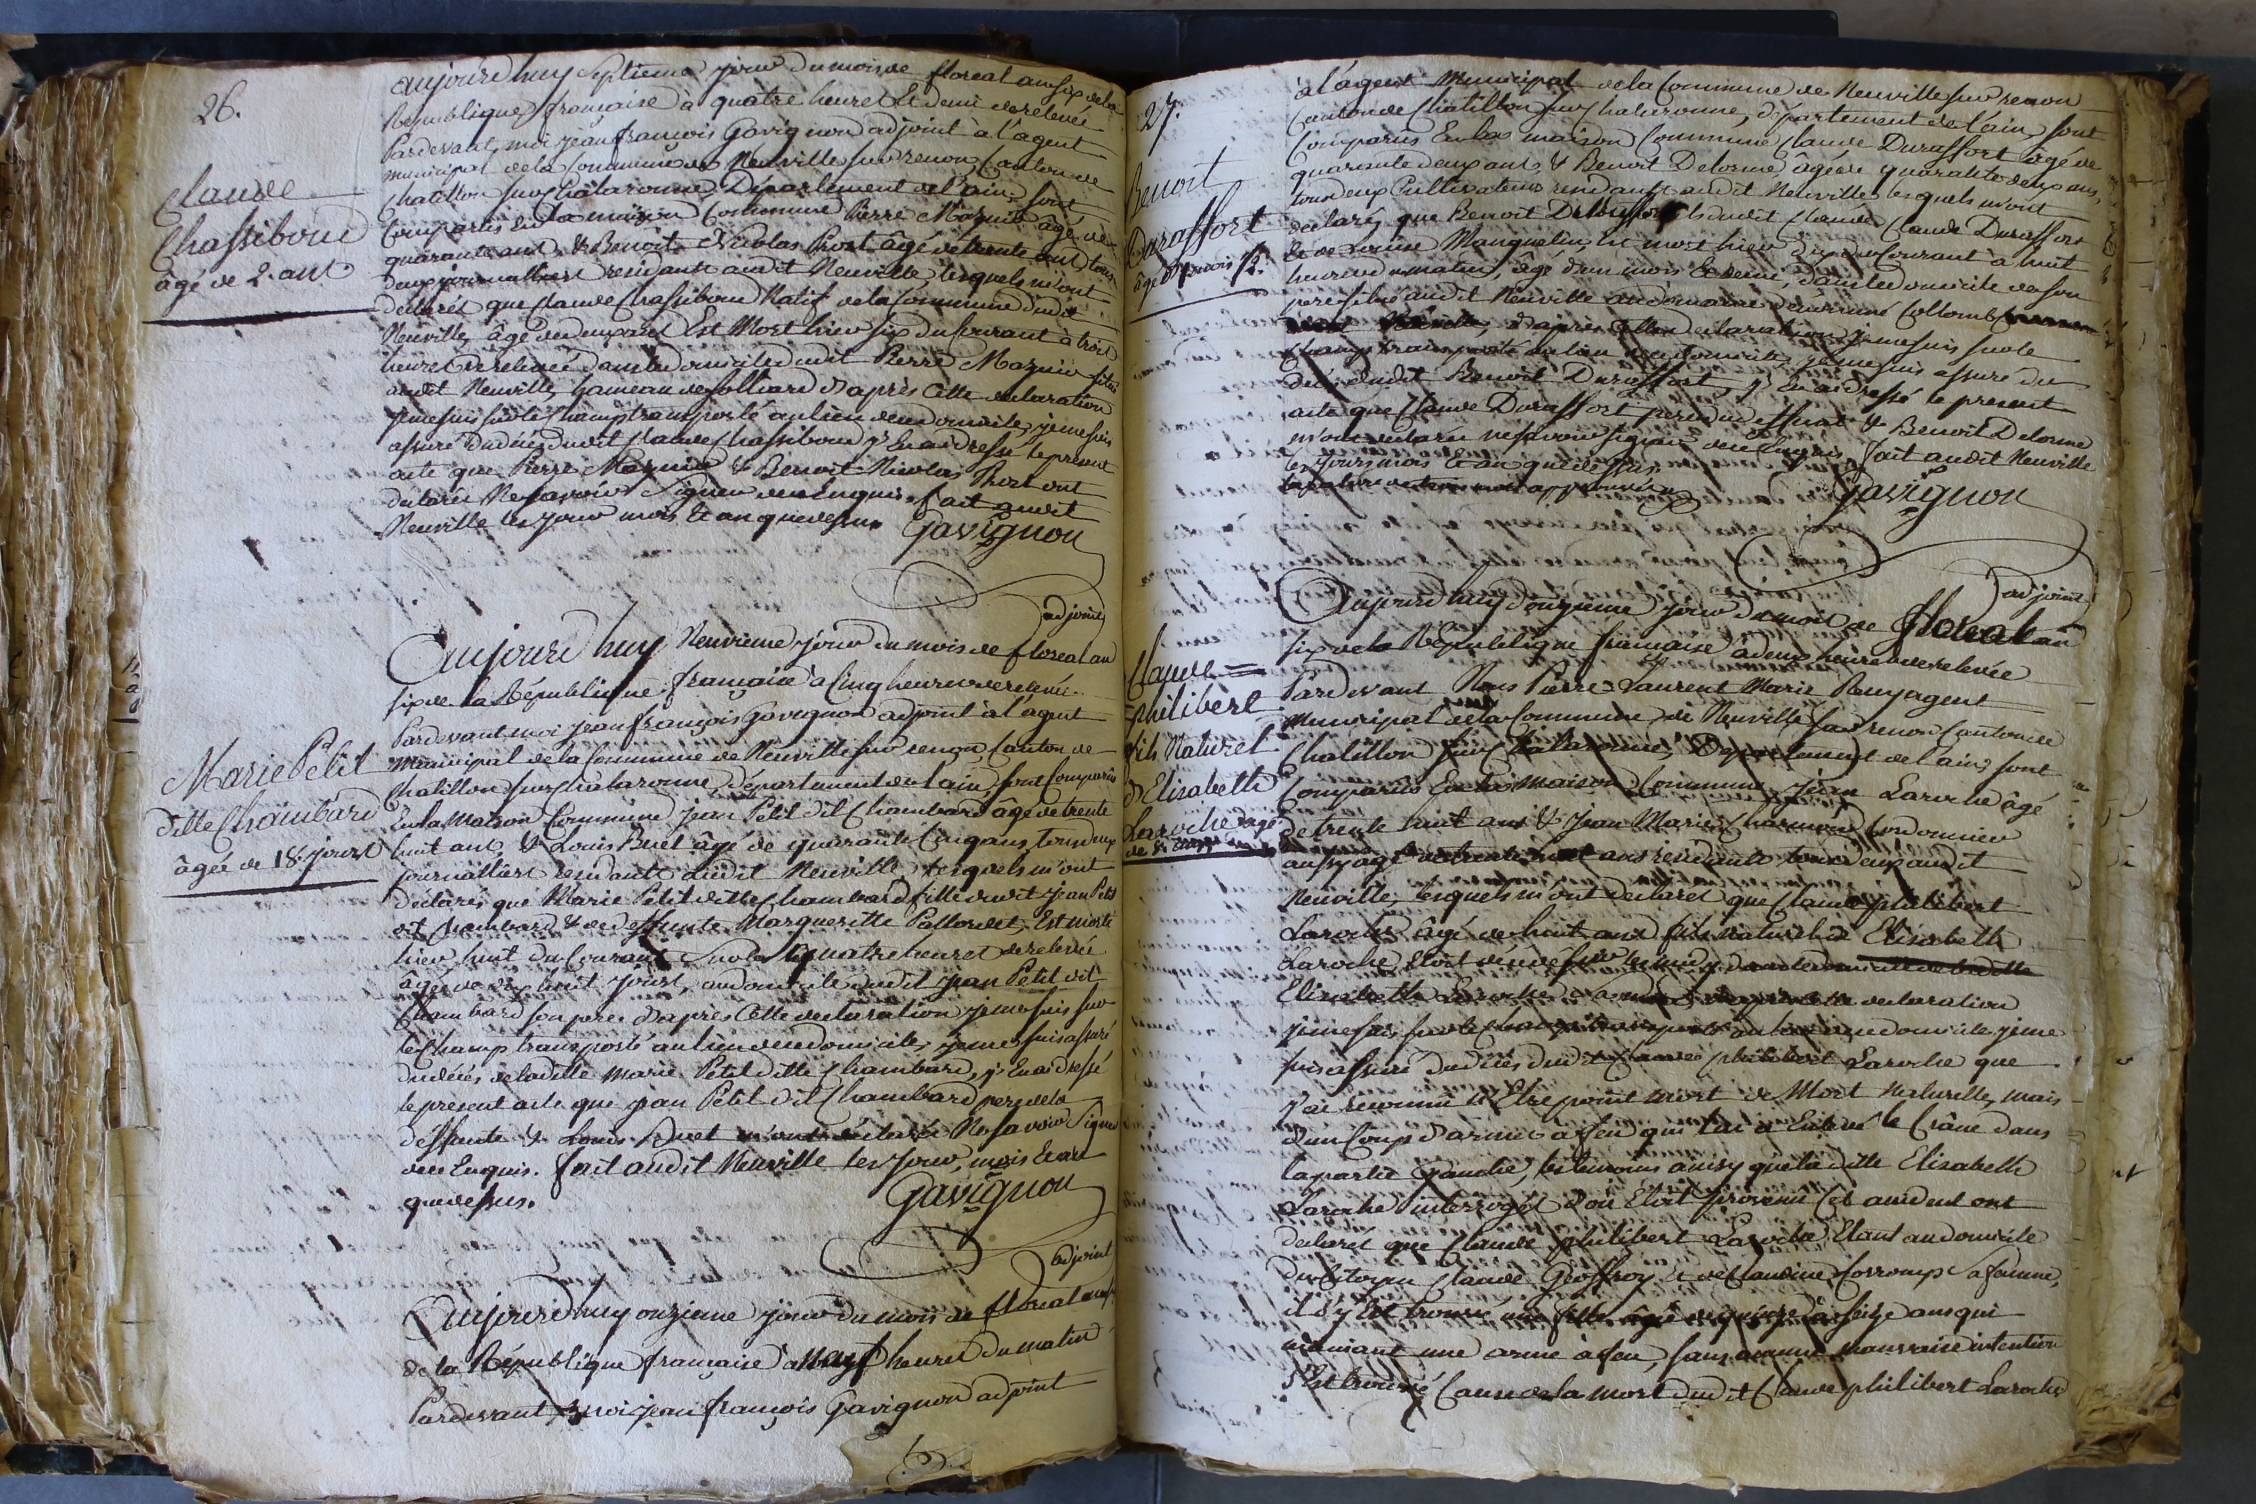 26.
Claude
Chassiboud
âgé de 2. ans
aujourd huy septieme jour du mois de floreal an six de la
Republique française à quatre heures & demi de relevée
Pardevant moi jean françois Gavignon adjoint à l'agent
municipal de la Commune de Neuville sur renon, Canton de
Chatillon sur Chalaronne, Département de l'ain, sont
Comparus En la maison Commune Pierre Maznio âgé de
quarante ans, & Benoit Nicolas Prost âgé de trente ans, tous
deux journalliers residants audit Neuville, lesquels m'ont
declarés que Claude Chassiboud Natif de la Commune dudit
Neuville, âgé de deux ans Est Mort hier six du Courant à trois
heures de relevée dans le domicile dudit Pierre Maznio situé
audit Neuville, hameau de folliard d'après Cette declaration
je me suis sur le Champ transporté au lieu de ce domicile, je me suis
assuré du décès dudit Claude Chassiboud j'En ai dressé le present
acte que Pierre Maznio & Benoit Nicolas Prost ont
declarés Ne savoir Signer de ce Enquis. fait audit
Neuville les jour mois & an que dessus. Gavignon
adjoint
Marie Petit
ditte Chambard
âgée de 18. jours
Aujourd huy Neuvieme jour du mois de floreal an
six de la République française à Cinq heures de relevée
Pardevant moi jean françois Gavignon adjoint à l'agent
Municipal de la Commune de Neuville sur renon, Canton de
Chatillon sur Chalaronne, département de l'ain, sont Comparus
En la Maison Commune jean Petit dit Chambard âgé de trente
huit ans & Louis Buet âgé de quarante Cinq ans, tous deux
journalliers residants audit Neuville, lesquels m'ont
déclarés que Marie Petit ditte Chambard fille dudit jean Petit
dit Chambard & de deffunte Marguerite Pallordet, Est morte
hier huit du Courant sur les quatre heures de relevée
âgée de dix huit jours, au domicile dudit jean Petit dit
Chambard son pere d'après Cette declaration je me suis sur
le Champ transporté au lieu de ce domicile, je me suis assuré
du décès de la ditte Marie Petit ditte Chambard, j'En ai dressé
le present acte que jean Petit dit Chambard pere de la
deffunte & Louis Buet m'ont declarés Ne savoir Signer
de ce Enquis. fait audit Neuville les jour, mois & an
que dessus. Gavignon
adjoint
Aujourd huy onzieme jour du mois de floreal an six
de la République française à Neuf heures du matin
Pardevant moi jean françois Gavignon adjoint
27.
Benoit
Duraffort
âgé d'1 mois 1/2.
à l'agent Municipal de la Commune de Neuville sur renon
Canton de Chatillon sur Chalaronne, département de l'ain, sont
Comparus En la maison Commune Claude Duraffort âgé de
quarante deux ans & Benoit Delorme âgé de quarante deux ans,
tous deux Cultivateurs residants audit Neuville, lesquels m'ont
declarés que Benoit fils dudit Claude Duraffort
& de Louise Manguelin, Est mort hier dix du Courant à huit
heures du matin, âgé d'un mois & demi, dans le domicile de son
pere situé audit Neuville au domaine Collomb
d'après Cette declaration je me suis sur le
Champ transporté au lieu de ce domicile, je me suis assuré du
décès dudit Benoit Duraffort, j'En ai dressé le present
acte que Claude Duraffort pere du deffunt & Benoit Delorme
m'ont declarés ne savoir signer de ce Enquis. fait audit Neuville
les jours mois & an que dessus.
Gavignon
adjoint
Claude =
philibert
fils Naturel
d'Elisabeth
Laroche âgé
de 8. ans
Aujourd huy douzieme jour du mois de floreal an
six de la République française à deux heures de relevée
Pardevant Nous Pierre Laurent Marie Remy agent
Municipal de la Commune de Neuville sur renon Canton de
Chatillon sur Chalaronne, Departement de l'ain, sont
Comparus En la maison Commune, jean Laroche âgé
de trente huit ans & jean Marie Charmond Cordonnier
aussy âgé de trente huit ans residants tous deux audit
Neuville, lesquels m'ont declarés que Claude philibert
Laroche âgé de huit ans fils naturel d'Elisabeth
Laroche Etoit décédé hier dans le domicile de la ditte
Elisabeth Laroche d'après Cette declaration
je me suis sur le Champ transporté au lieu de ce domicile, je me
suis assuré du décès dudit Claude philibert Laroche que
j'ai reconnu N'Etre point mort de Mort Naturelle, mais
d'un Coup d'arme à feu qui lui a Enlevé le Crâne dans
la partie gauche, les temoins ainsy que la ditte Elisabeth
Laroche interrogés d'où Etoit provenu Cet accident ont
declarés que Claude philibert Laroche Etant au domicile
du Citoyen Claude Geoffroy & de Claudine Corromp sa femme,
il s'y Est trouvé une fille âgée de quinze à seize ans qui
maniant une arme à feu, sans aucune mauvaise intention
s'Est trouvé Cause de la mort dudit Claude philibert Laroche